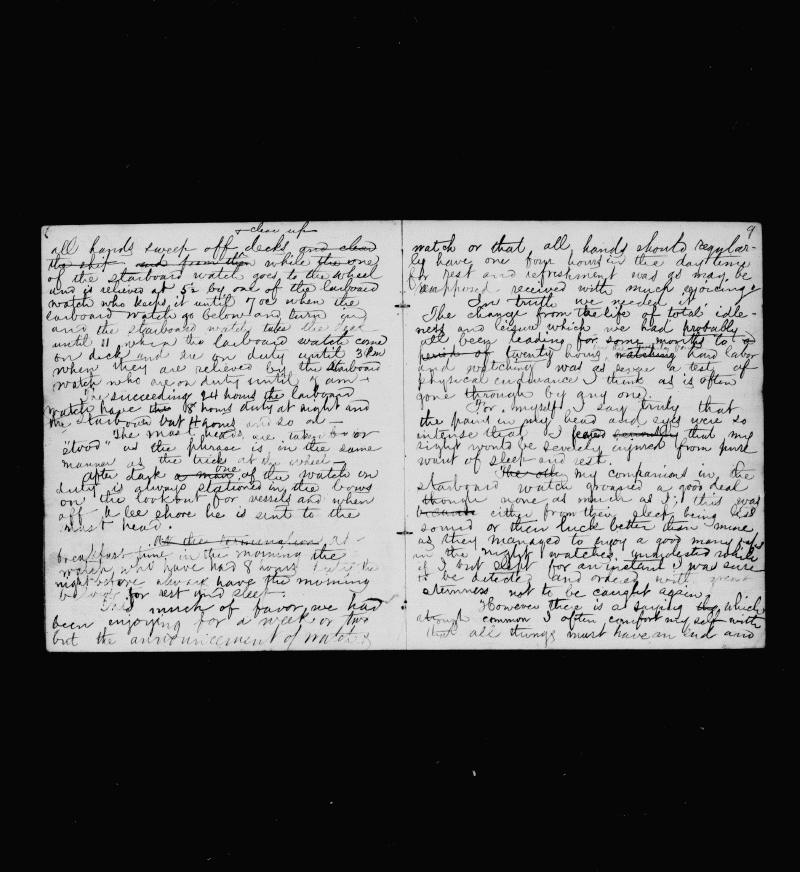 & clear up
all hands sweep off decks and clear
the ship and from then while the one
of the Starboard watch goes to the wheel
and is relieved at 5½ by one of the larboard
watch who keeps it until 7 oc when the
larboard watch go below and turn in
and the starboard watch take the
until 11 when the larboard watch come
on deck and are on duty until 3 PM
when they are relieved by the Starboard
watch who are on duty until 7 am
The succeeding 24 hours the larboard
watch have the 8 hours duty at night and
the starboard but 4 hours and so on
The mast heads are taken or
"stood" as the phrase is in the same
manner as the trick at the wheel
After dark a man one of the watch on
duty is always stationed in the bows
on the lookout for vessels and when
off a lee shore he is sent to the
mast head.
At the termination At
breakfast time in the morning the
watch who have had 8 hours the
night before always have the morning
below for rest and sleep.
This much of favor we had
been enjoying for a week or two
but the announcement of watch &
9
watch or that all hands should regular-
ly have one four hours in the day time
for rest and refreshment was as may be
supposed received with much rejoicing
In truth we needed it.
The change from the life of total idle-
ness and leisure which we had probably
all been leading for some months to a
period of twenty hours watching hard labor
and watching was as severe a test of
physical endurance I think as is often
gone through by any one.
For myself I say truly that
the pains in my head and eyes were so
intense that I feared seriously that my
sight would be severely injured from pure
want of sleep and rest.
The other my companions in the
starboard watch groaned a good deal
though none as much as I; this was
because either from their sleep being less
sound or their luck better than mine
as they managed to enjoy a good many naps
in the night watches undetected while
if I but slept for an instant I was sure
to be detected and ordered with great
sternness not to be caught again
However there is a saying which
though common I often comfort myself with
that all things must have an end and